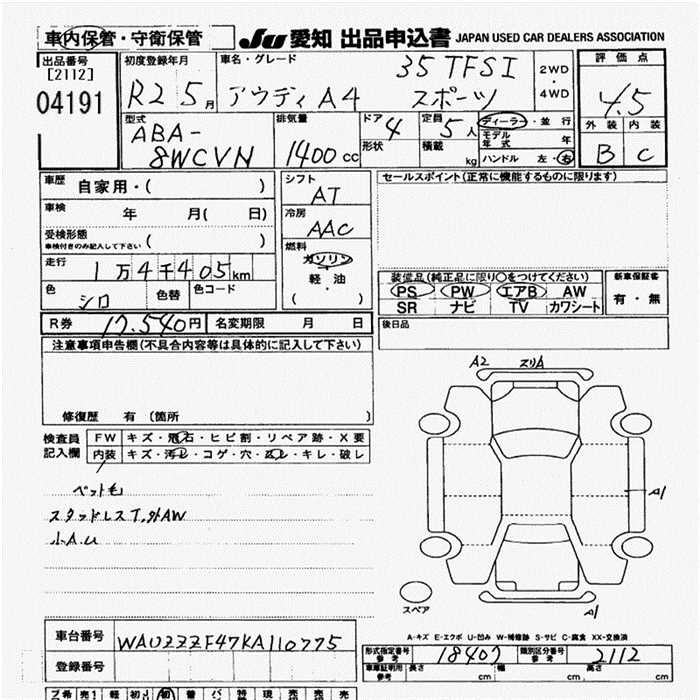 車内保管・守衛保管 JU 愛知 出品申込書 JAPAN USED CAR DEALERS ASSOCIATION
出品番号 [2112] 04191
初度登録年月 R2 5月
車名・グレード アウディA4 35TFSI スポーツ
2WD ・ 4WD
評価点 4.5
外装 内装
B C
型式 ABA-8WCVN
排気量 1400cc
ドア形状 4
定員 5人
積載 kg
ディーラー・並行
モデル年式 年
ハンドル 左・右
車歴 自家用・( )
車検 年 月( 日)
受検形態 ( )
車検付きのみ記入して下さい
走行 1万4千405km
色 シロ 色替 色コード
シフト AT
冷房 AAC
燃料 ガソリン・軽・油 ( )
セールスポイント(正常に機能するものに限ります)
装備品(純正品に限り○をつけてください)
PS PW エアB AW
SR ナビ TV カワシート
新車保証書 有・無
R券 17.540円 名変期限 月 日
後日品
注意事項申告欄(不具合内容等は具体的に記入して下さい)
修復歴 有 (箇所 )
検査員記入欄
FW キズ・飛石・ヒビ割・リペア跡・X要
内装 キズ・汚レ・コゲ・穴・スレ・キレ・破レ
ペット毛
スタッドレスT.外AW
小A.U
A2 スリA
A1
A1
スペア
A-キズ E-エクボ U-凹み W-補修跡 S-サビ C-腐食 XX-交換済
車台番号 WAUZZZF47KA110775
登録番号
型式指定番号 参考 18407 類別区分番号 参考 2112
車庫証明用 参考 長さ cm 幅 cm 高さ cm